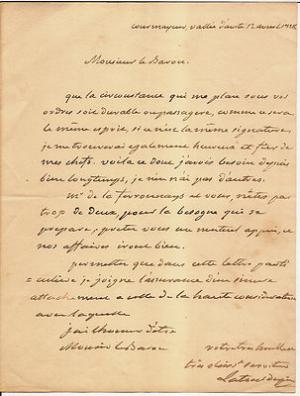 courmayeur, vallée d'aoste 12 avril
Monsieur le Baron.
que la circonstance qui me place sous vos
ordres soit durable ou passagere, comme ce sera
le même esprit, si ce n'est la même signature,
je me trouverai egalement heureux et fier de
mes chefs. voila ce dont j'avais besoin depuis
bien longtemps, je n'en n'ai pas d'autres.
Mr de la ferronnays et vous, n'êtes pas
trop de Deux, pour la besogne qui se
prepare; pretez vous un mutuel appui, et
nos affaires iront bien.
permettez que dans cette lettre parti
= culière je joigne l'assurance d'un sincere
attachement a celle de la haute consideration
avec laquelle
j'ai l'honneur d'être
Monsieur le Baron
votre tres humble
très obéisst serviteur